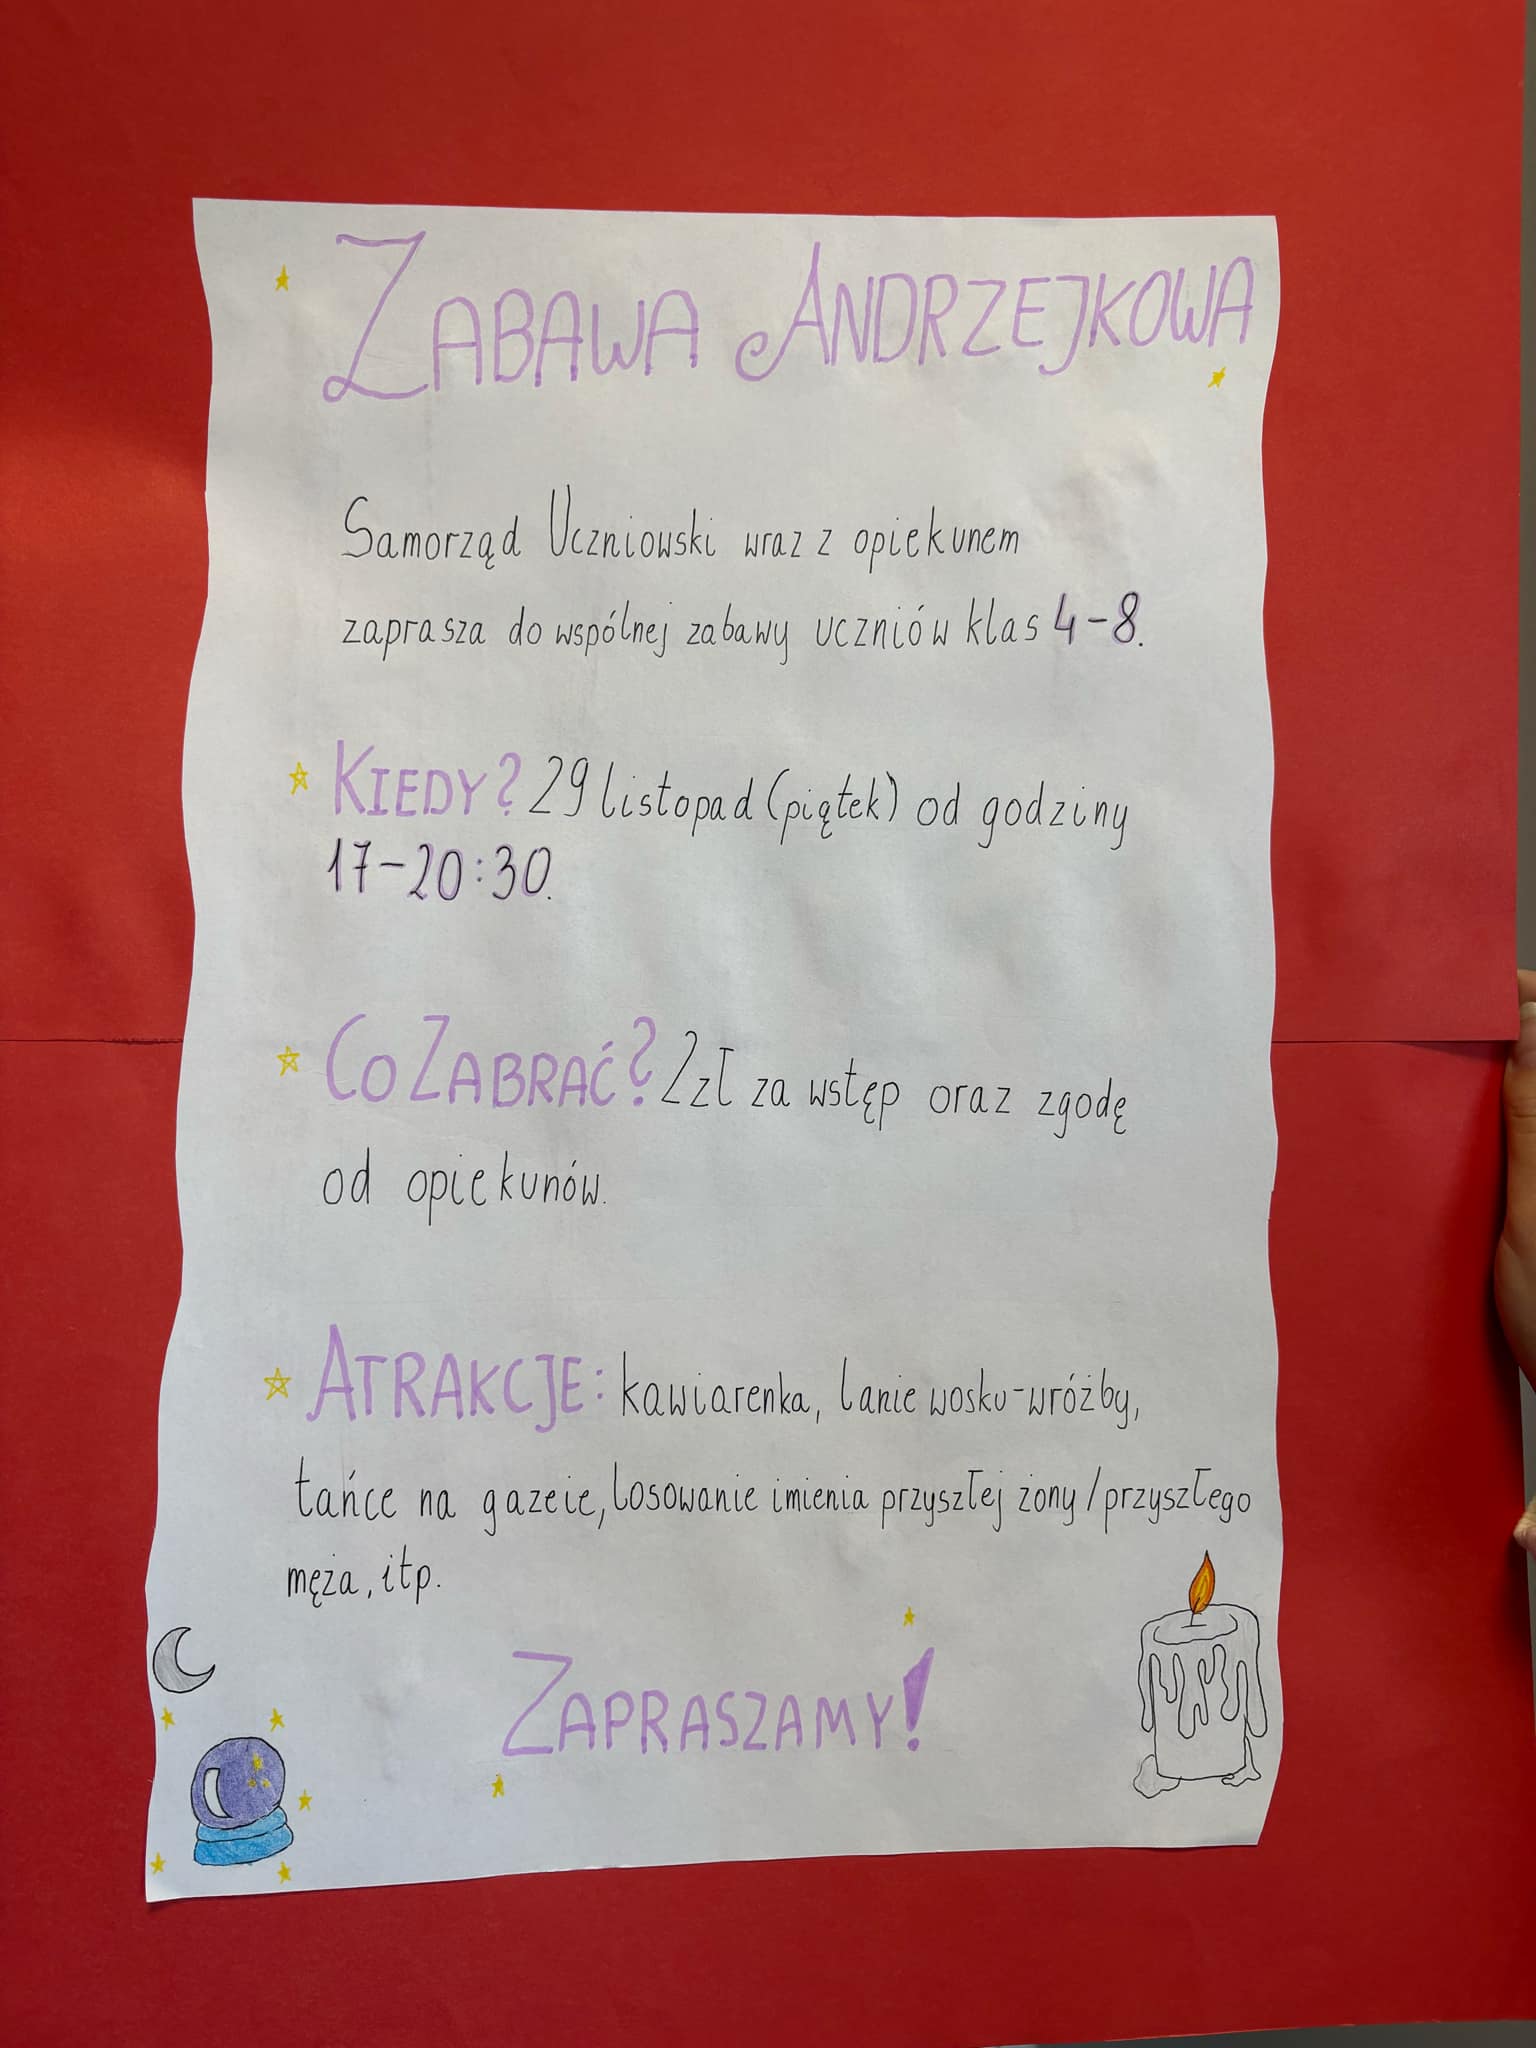 ZABAWA ANDRZEJKOWA
Samorząd Uczniowski wraz z opiekunem
zaprasza do wspólnej zabawy uczniów klas 4-8.
KIEDY? 29 listopad (piątek) od godziny
17-20:30.
CO ZABRAĆ? 2zł za wstęp oraz zgodę
od opiekunów.
ATRAKCJE: kawiarenka, lanie wosku-wróżby,
tańce na gazecie, losowanie imienia przyszłej żony/przyszłego
męża, itp.
ZAPRASZAMY!